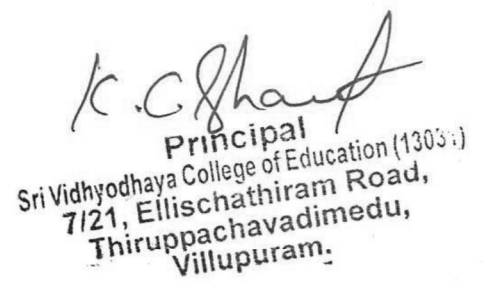 Principal
Sri Vidhyodhaya College of Education
7/21, Ellischathiram Road,
Thiruppachavadimedu,
Villupuram.